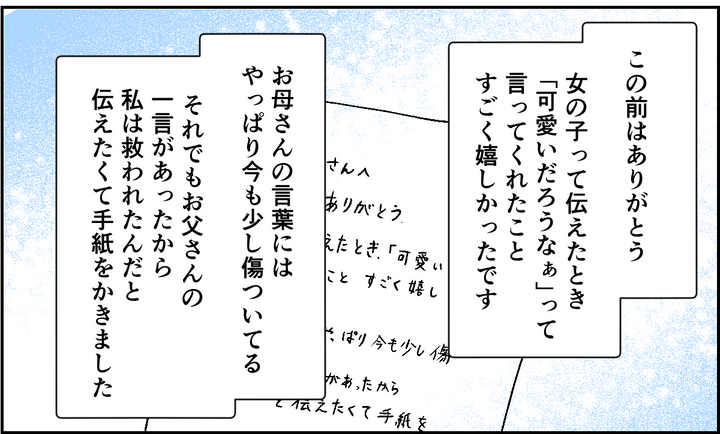 この前はありがとう
女の子って伝えたとき
「可愛いだろうなぁ」って
言ってくれたこと
すごく嬉しかったです
お母さんの言葉には
やっぱり今も少し傷ついてる
それでもお父さんの
一言があったから
私は救われたんだと
伝えたくて手紙をかきました
さんへ
ありがとう
えたとき、「可愛い
こと すごく嬉し
っぱり今も少し傷
があったから
と伝えたくて手紙を